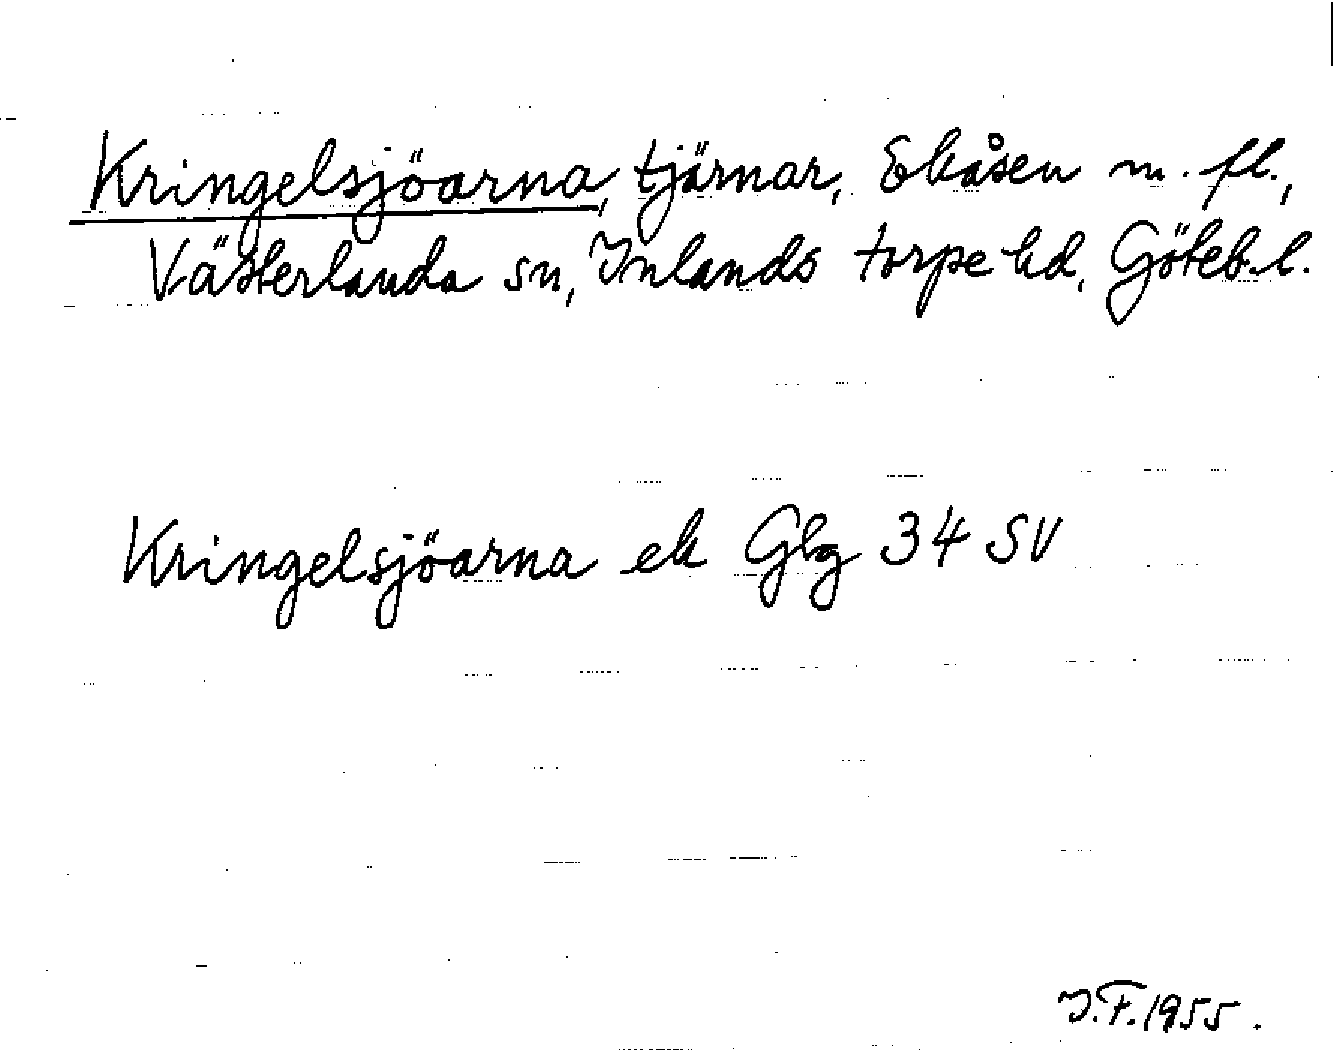 Kringelsjöarna, tjärnar, Ekåsen m. fl.,
Västerlanda sn, Inlands torpe hd, Göteb. l.
Kringelsjöarna ek Gbg 34 SV
I.F. 1955.